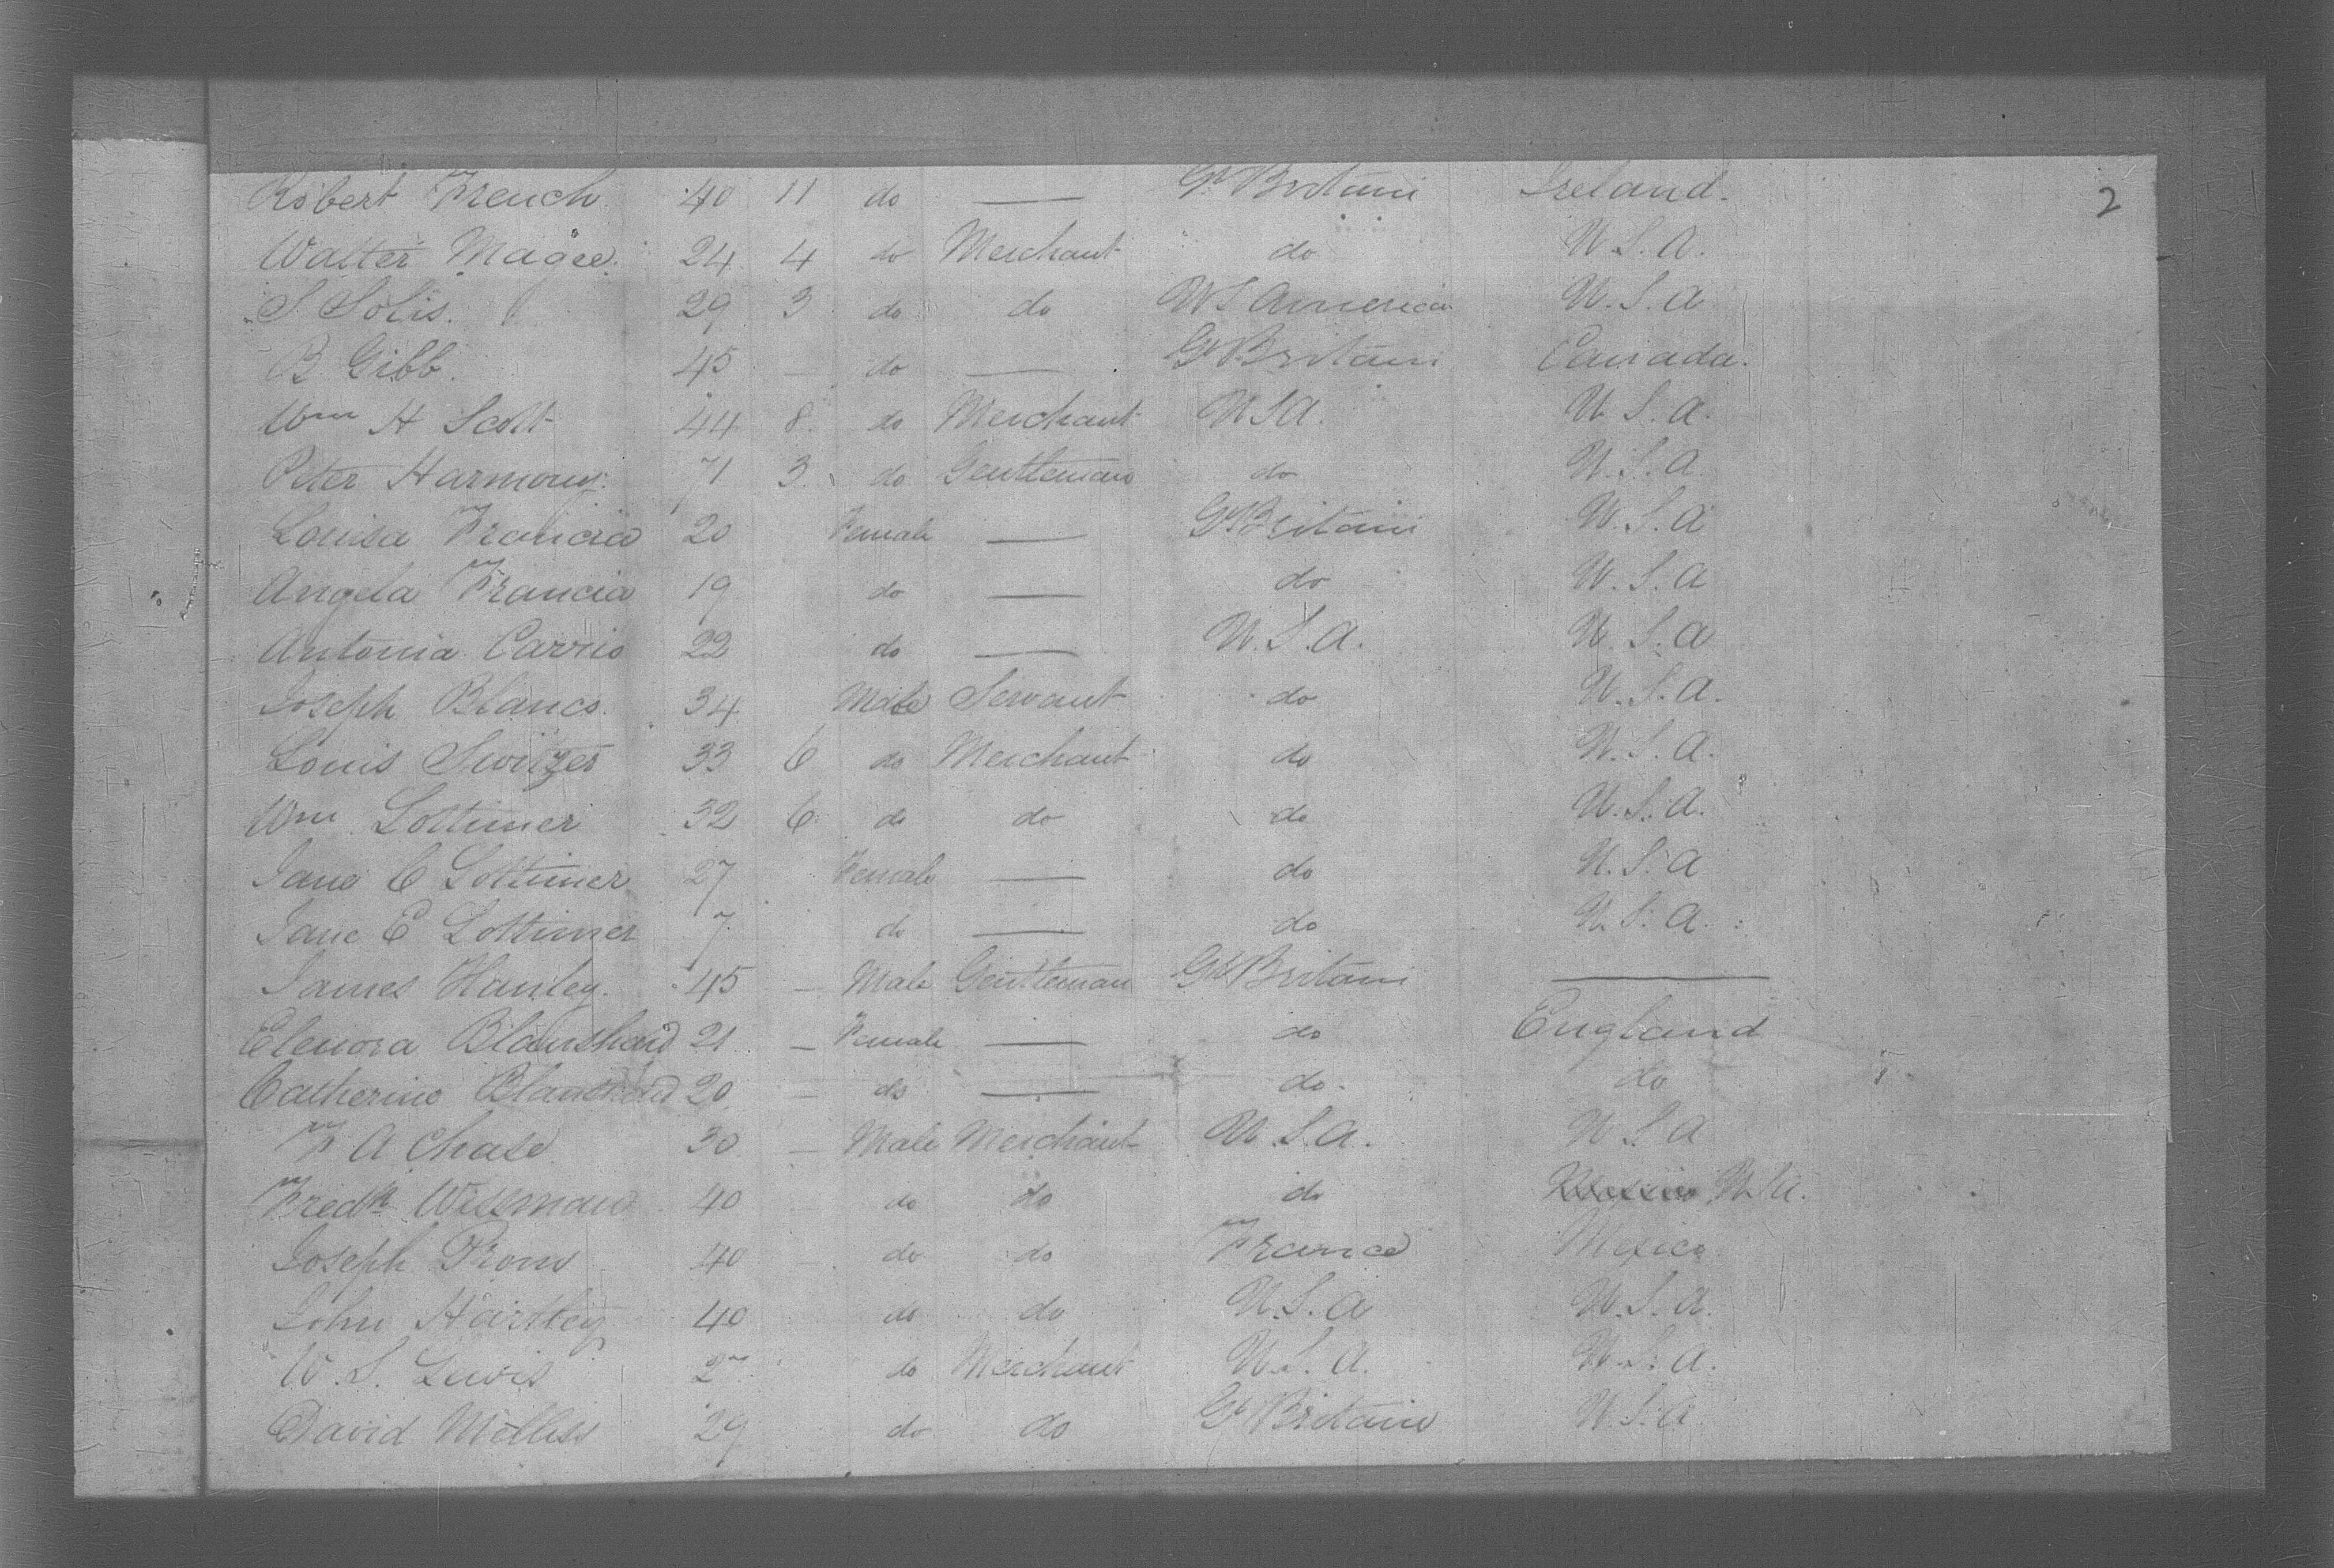 2
Robert French 40 11 do — Gt Britain Ireland.
Walter Magee 24 4 do Merchant do U.S.A.
S Solis. 29 3 do do U S America U.S.A
B Gibb. 45 — do — Gt Britain Canada.
Wm H Scott 44 8 do Merchant USA. U S. A.
Peter Harmony. 71 3. do Gentleman do U.S.A.
Louisa Francia 20 Female — Gt Britain U.S.A
Angela Francia 19 do — do U.S.A
Antonia Carrio 22 do — U.S.A. U.S.A
Joseph Blanco 34 Male Servant do U.S.A.
Louis Switzer 33 6 do Merchant do U.S.A.
Wm Lottimer 32 6 do do do U.S.A.
Jane C Lottimer 27 Female — do U.S.A
Jane E Lottimer 7 do — do U.S.A.
James Hanley. 45 — Male Gentleman Gt Britain —
Elenora Blanshard 21 — Female — do England
Catherine Blanshard 20 — do — do. do
F A Chase 30 — Male Merchant U.S.A. U S A
Fredk Wissman 40 do do do Mexico
Joseph Prom 40 do do France Mexico
John Hartley 40 do do U.S.A U.S.A.
W. S. Lewis 27 do Merchant U.S.A. U.S.A.
David Melliss 29 do do Gt Britain U.S.A